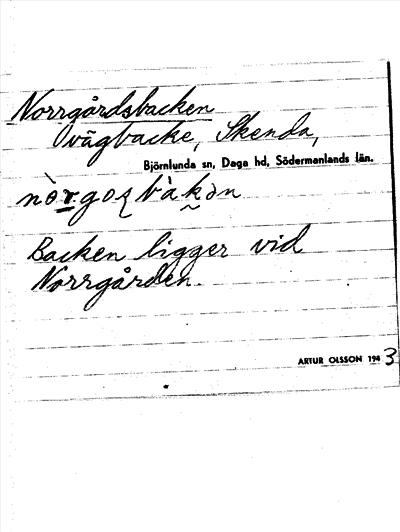 Norrgårdsbacken
vägbacke, Skenda,
Björnlunda sn, Daga hd, Södermanlands län.
Backen ligger vid
Norrgården.
ARTUR OLSSON 1943